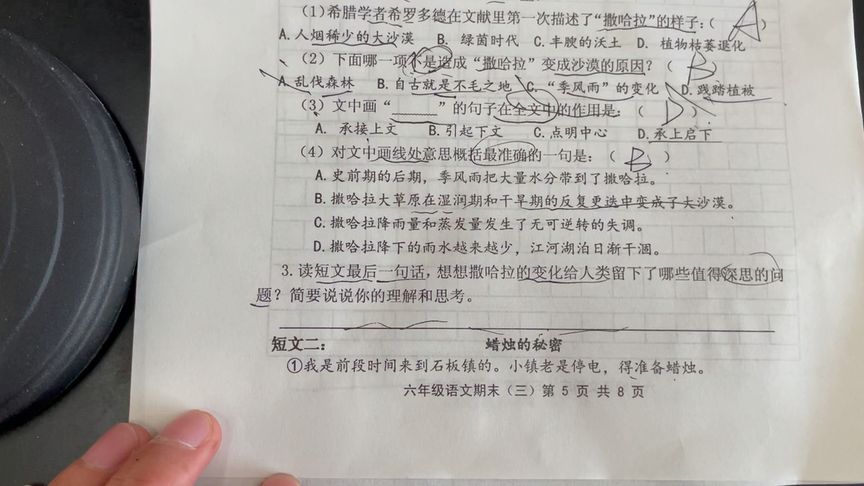 (1)希腊学者希罗多德在文献里第一次描述了“撒哈拉”的样子:( A )
A.人烟稀少的大沙漠 B. 绿茵时代 C.丰腴的沃土 D. 植物枯萎退化
(2) 下面哪一项不是造成“撒哈拉”变成沙漠的原因? ( B )
A.乱伐森林 B.自古就是不毛之地 C.“季风雨”的变化 D.践踏植被
(3) 文中画“______”的句子在全文中的作用是: ( D )
A. 承接上文 B.引起下文 C.点明中心 D.承上启下
(4) 对文中画线处意思概括最准确的一句是: ( B )
A.史前期的后期,季风雨把大量水分带到了撒哈拉。
B.撒哈拉大草原在湿润期和干旱期的反复更迭中变成了大沙漠。
C.撒哈拉降雨量和蒸发量发生了无可逆转的失调。
D.撒哈拉降下的雨水越来越少,江河湖泊日渐干涸。
3.读短文最后一句话,想想撒哈拉的变化给人类留下了哪些值得深思的问
题?简要说说你的理解和思考。
短文二: 蜡烛的秘密
①我是前段时间来到石板镇的。小镇老是停电,得准备蜡烛。
六年级语文期末(三)第 5 页 共 8 页